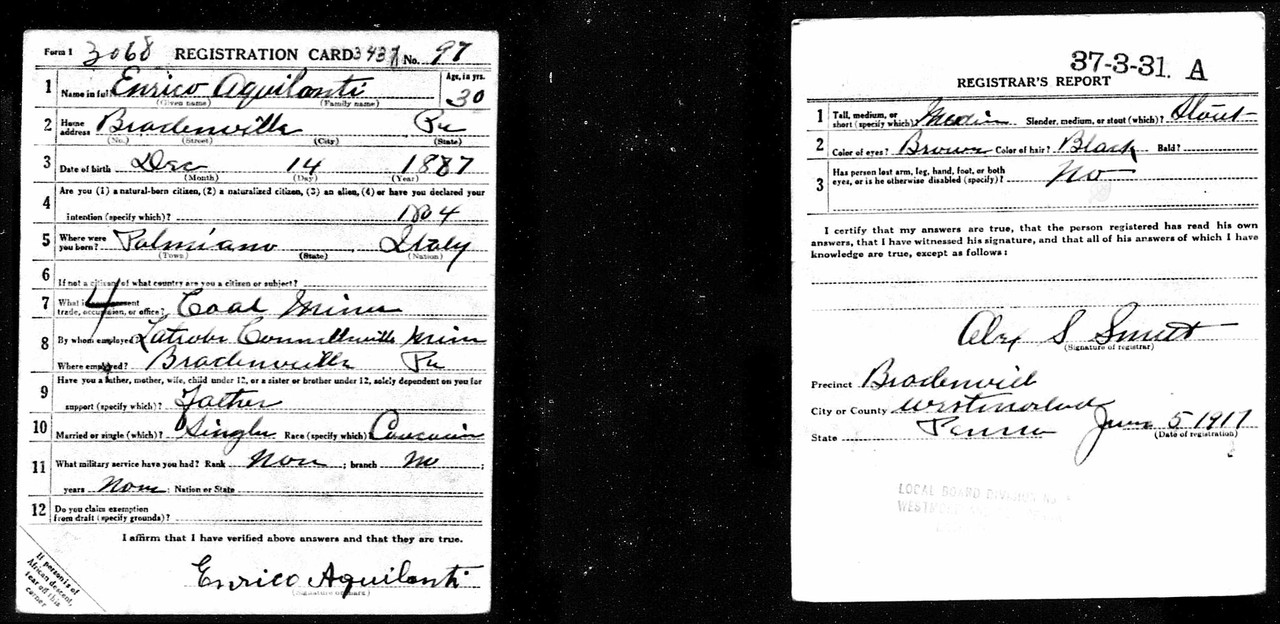 Form 1 3068 REGISTRATION CARD 3437 No. 97
1 Name in full Enrico Aquilanti Age, in yrs. 30
(Given name) (Family name)
2 Home address Bradenville Pa
(No.) (Street) (City) (State)
3 Date of birth Dec 14 1887
(Month) (Day) (Year)
Are you (1) a natural-born citizen, (2) a naturalized citizen, (3) an alien, (4) or have you declared your
4 intention (specify which)? No 4
5 Where were you born? Palmiano Italy
(Town) (State) (Nation)
6 If not a citizen of what country are you a citizen or subject?
7 What is present trade, occupation, or office? 4 Coal Miner
8 By whom employed? Latrobe Connellsville Mine
Where employed? Bradenville Pa
9 Have you a father, mother, wife, child under 12, or a sister or brother under 12, solely dependent on you for
support (specify which)? Father
10 Married or single (which)? Single Race (specify which) Caucasian
11 What military service have you had? Rank Non ; branch no ;
years Non ; Nation or State
12 Do you claim exemption from draft (specify grounds)?
I affirm that I have verified above answers and that they are true.
Enrico Aquilanti
(Signature or mark)
If person is of African descent, tear off this corner
37-3-31. A
REGISTRAR'S REPORT
1 Tall, medium, or short (specify which)? Medium Slender, medium, or stout (which)? Stout
2 Color of eyes? Brown Color of hair? Black Bald?
3 Has person lost arm, leg, hand, foot, or both eyes, or is he otherwise disabled (specify)? No
I certify that my answers are true, that the person registered has read his own
answers, that I have witnessed his signature, and that all of his answers of which I have
knowledge are true, except as follows:
Alex S
(Signature of registrar)
Precinct Bradenvill
City or County Westmorland
State Penna June 5 1917
(Date of registration)
LOCAL BOARD DIVISION NO.